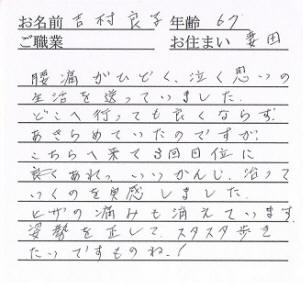 お名前 吉村良子 年齢 67
ご職業 お住まい 妻田
腰痛がひどく、泣く思いの
生活を送っていました。
どこへ行っても良くならず、
あきらめていたのですが、
こちらへ来て3回目位に
あれっ、いいかんじ、治って
いくのを実感しました。
ヒザの痛みも消えています。
姿勢を正して、スタスタ歩き
たいですものね!